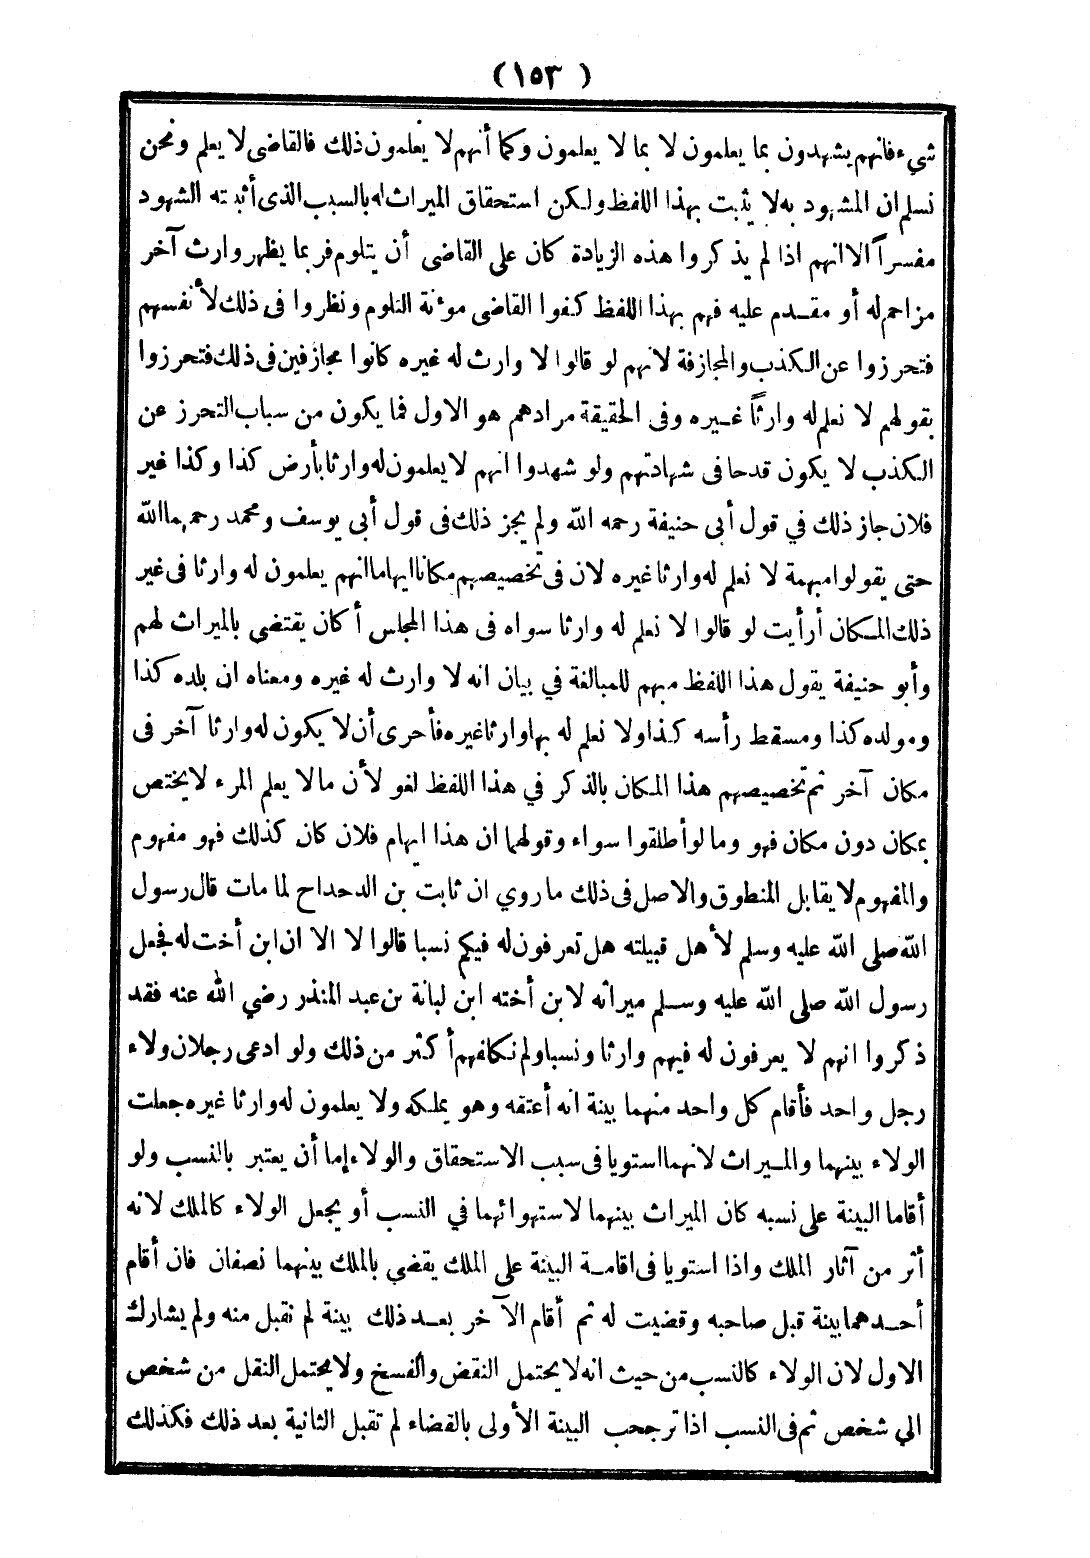 (١٥٣)
شيء فانهم يشهدون بما يعلمون لا بما لا يعلمون وكما أنهم لا يعلمون ذلك فالقاضى لا يعلم ونحن
نسلم ان المشهود به لا يثبت بهذا اللفظ ولكن استحقاق الميراث له بالسبب الذى أثبته الشهود
مفسراً الا انهم اذا لم يذكروا هذه الزيادة كان على القاضى أن يتلوم فربما يظهر وارث آخر
مزاحم له أو مقدم عليه فهم بهذا اللفظ كفوا القاضى موءنة التلوم ونظروا فى ذلك لأنفسهم
فتحرزوا عن الكذب والمجازفة لانهم لو قالوا لا وارث له غيره كانوا مجازفين فى ذلك فتحرزوا
بقولهم لا نعلم له وارثاً غيره وفى الحقيقة مرادهم هو الاول فما يكون من سباب التحرز عن
الكذب لا يكون قدحا فى شهادتهم ولو شهدوا انهم لا يعلمون له وارثا بأرض كذا وكذا غير
فلان جاز ذلك في قول أبى حنيفة رحمه الله ولم يجز ذلك فى قول أبى يوسف ومحمد رحمهما الله
حتى يقولوا مبهمة لا نعلم له وارثا غيره لان فى تخصيصهم مكانا ايهاما انهم يعلمون له وارثا فى غير
ذلك المكان أرأيت لو قالوا لا نعلم له وارثا سواه فى هذا المجلس أكان يقتضى بالميراث لهم
وأبو حنيفة يقول هذا اللفظ مبهم للمبالغة في بيان انه لا وارث له غيره ومعناه ان بلده كذا
ومولده كذا ومسقط رأسه كذا ولا نعلم له بها وارثا غيره فأحرى أن لا يكون له وارثا آخر فى
مكان آخر ثم تخصيصهم هذا المكان بالذكر في هذا اللفظ لغو لأن مالا يعلم المرء لا يختص
بمكان دون مكان فهو وما لو أطلقوا سواء وقولهما ان هذا ايهام فلان كان كذلك فهو مفهوم
والمفهوم لا يقابل المنطوق والاصل فى ذلك ما روي ان ثابت بن الدحداح لما مات قال رسول
الله صلى الله عليه وسلم لأهل قبيلته هل تعرفون له فيكم نسبا قالوا لا الا ان ابن أخت له فجعل
رسول الله صلى الله عليه وسلم ميراثه لابن أخته ابن لبانة بن عبد المنذر رضي الله عنه فقد
ذكروا انهم لا يعرفون له فيهم وارثا ونسبا ولم نكافهم أكثر من ذلك ولو ادعى رجلان ولاء
رجل واحد فأقام كل واحد منهما بينة انه أعتقه وهو يملكه ولا يعلمون له وارثا غيره جعلت
الولاء بينهما والميراث لانهما استويا فى سبب الاستحقاق والولاء إما أن يعتبر بالنسب ولو
أقاما البينة على نسبه كان الميراث بينهما لاستهوائهما في النسب أو يجعل الولاء كالملك لانه
أثر من آثار الملك واذا استويا فى اقامة البينة على الملك يقضي بالملك بينهما نصفان فان أقام
أحدهما بينة قبل صاحبه وقضيت له ثم أقام الآخر بعد ذلك بينة لم نقبل منه ولم يشارك
الاول لان الولاء كالنسب من حيث انه لا يحتمل النقض والفسخ ولا يحتمل النقل من شخص
الي شخص ثم فى النسب اذا ترجحب البينة الأولى بالقضاء لم تقبل الثانية بعد ذلك فكذلك